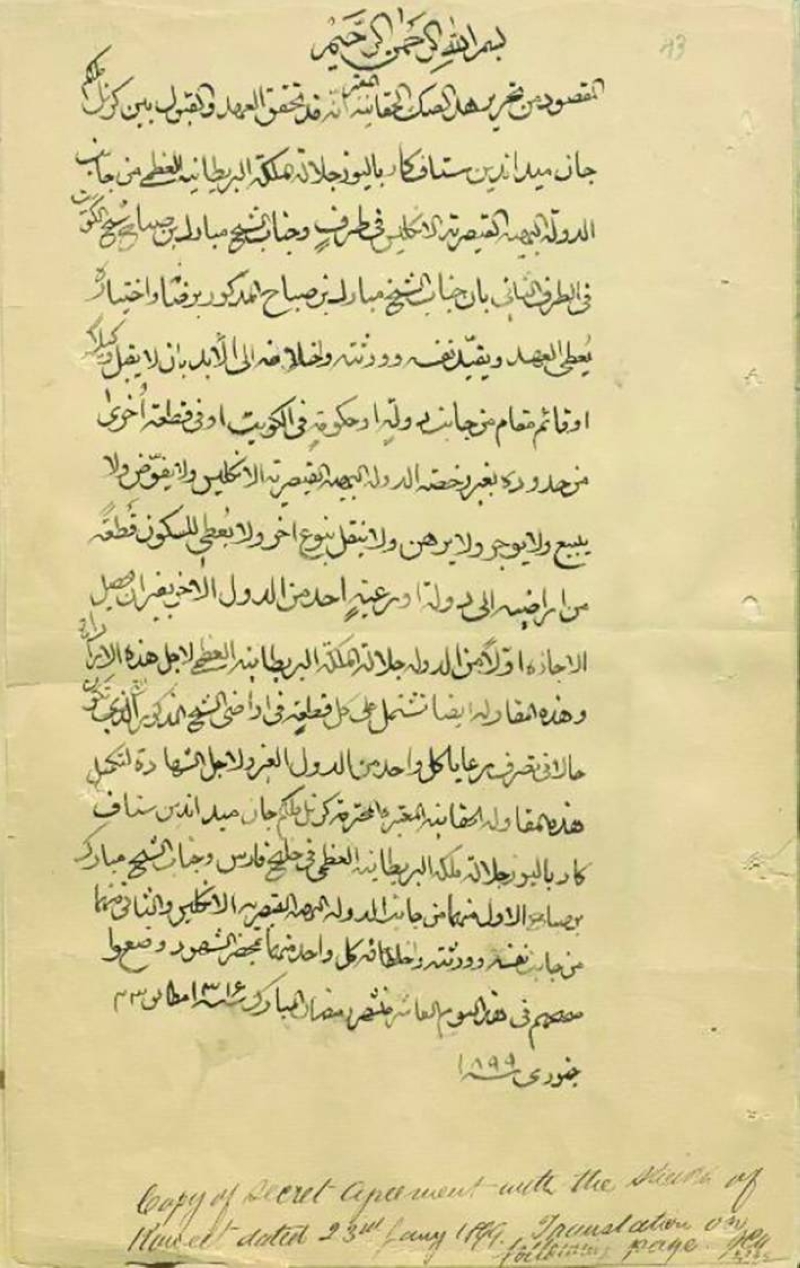 بسم الله الرحمن الرحيم
13
المقصود من تحرير هذا الصك انه قد تحقق العهد والقبول بين كرنل ملكم
جان ميد اندين ستاف كار باليوز جلالة ملكة البريطانية العظمى من جانب
الدولة البهية القيصرية الانكليس في طرفٍ وجناب الشيخ مبارك بن صباح شيخ الكويت
في الطرف الثاني بان جناب الشيخ مبارك بن صباح المذكور برضا واختياره
يُعطي العهد ويقيّد نفسه وورثته واخلافه الى الأبد بان لا يقبل وكيلا
او قائم مقام من جانب دولةٍ او حكومةٍ في الكويت او في قطعة أُخرى
من حدوده بغير رخصة الدولة البهية القيصرية الانكليس ولا يفوّض ولا
يبيع ولا يوجر ولا يرهن ولا ينقل بنوع اخر ولا يُعطي للسكون قطعةً
من اراضيه الى دولة او رعيةِ احد من الدول الاخرى بغير ان يحصل
الاجازة اولاً من الدولة جلالة الملكة البريطانية العظمى لاجل هذه
وهذه المقاولة ايضا تشتمل على كل قطعةٍ في اراضي الشيخ المذكور التي تكون
حالا في تصرف رعايا كل واحد من الدول ولاجل الشهادة لتكميل
هذه المقاولة المعتبرة المحترمة كرنل ملكم جان ميد اندين ستاف
كار باليوز جلالة ملكة البريطانية العظمى في خليج فارس وجناب الشيخ مبارك
بن صباح الاول منهما من جانب الدولة البهية القيصرية الانكليس والثاني منهما
من جانب نفسه وورثته واخلافه كل واحد منهما بمحضر الشهود وضعوا
في هذا اليوم العاشر من شهر رمضان المبارك ١٣١٦ مطابق ٢٣
جنوري سنة ١٨٩٩
Copy of Secret Agreement with the Sheikh of
Koweit dated 23rd Jany 1899. Translation on
following page.